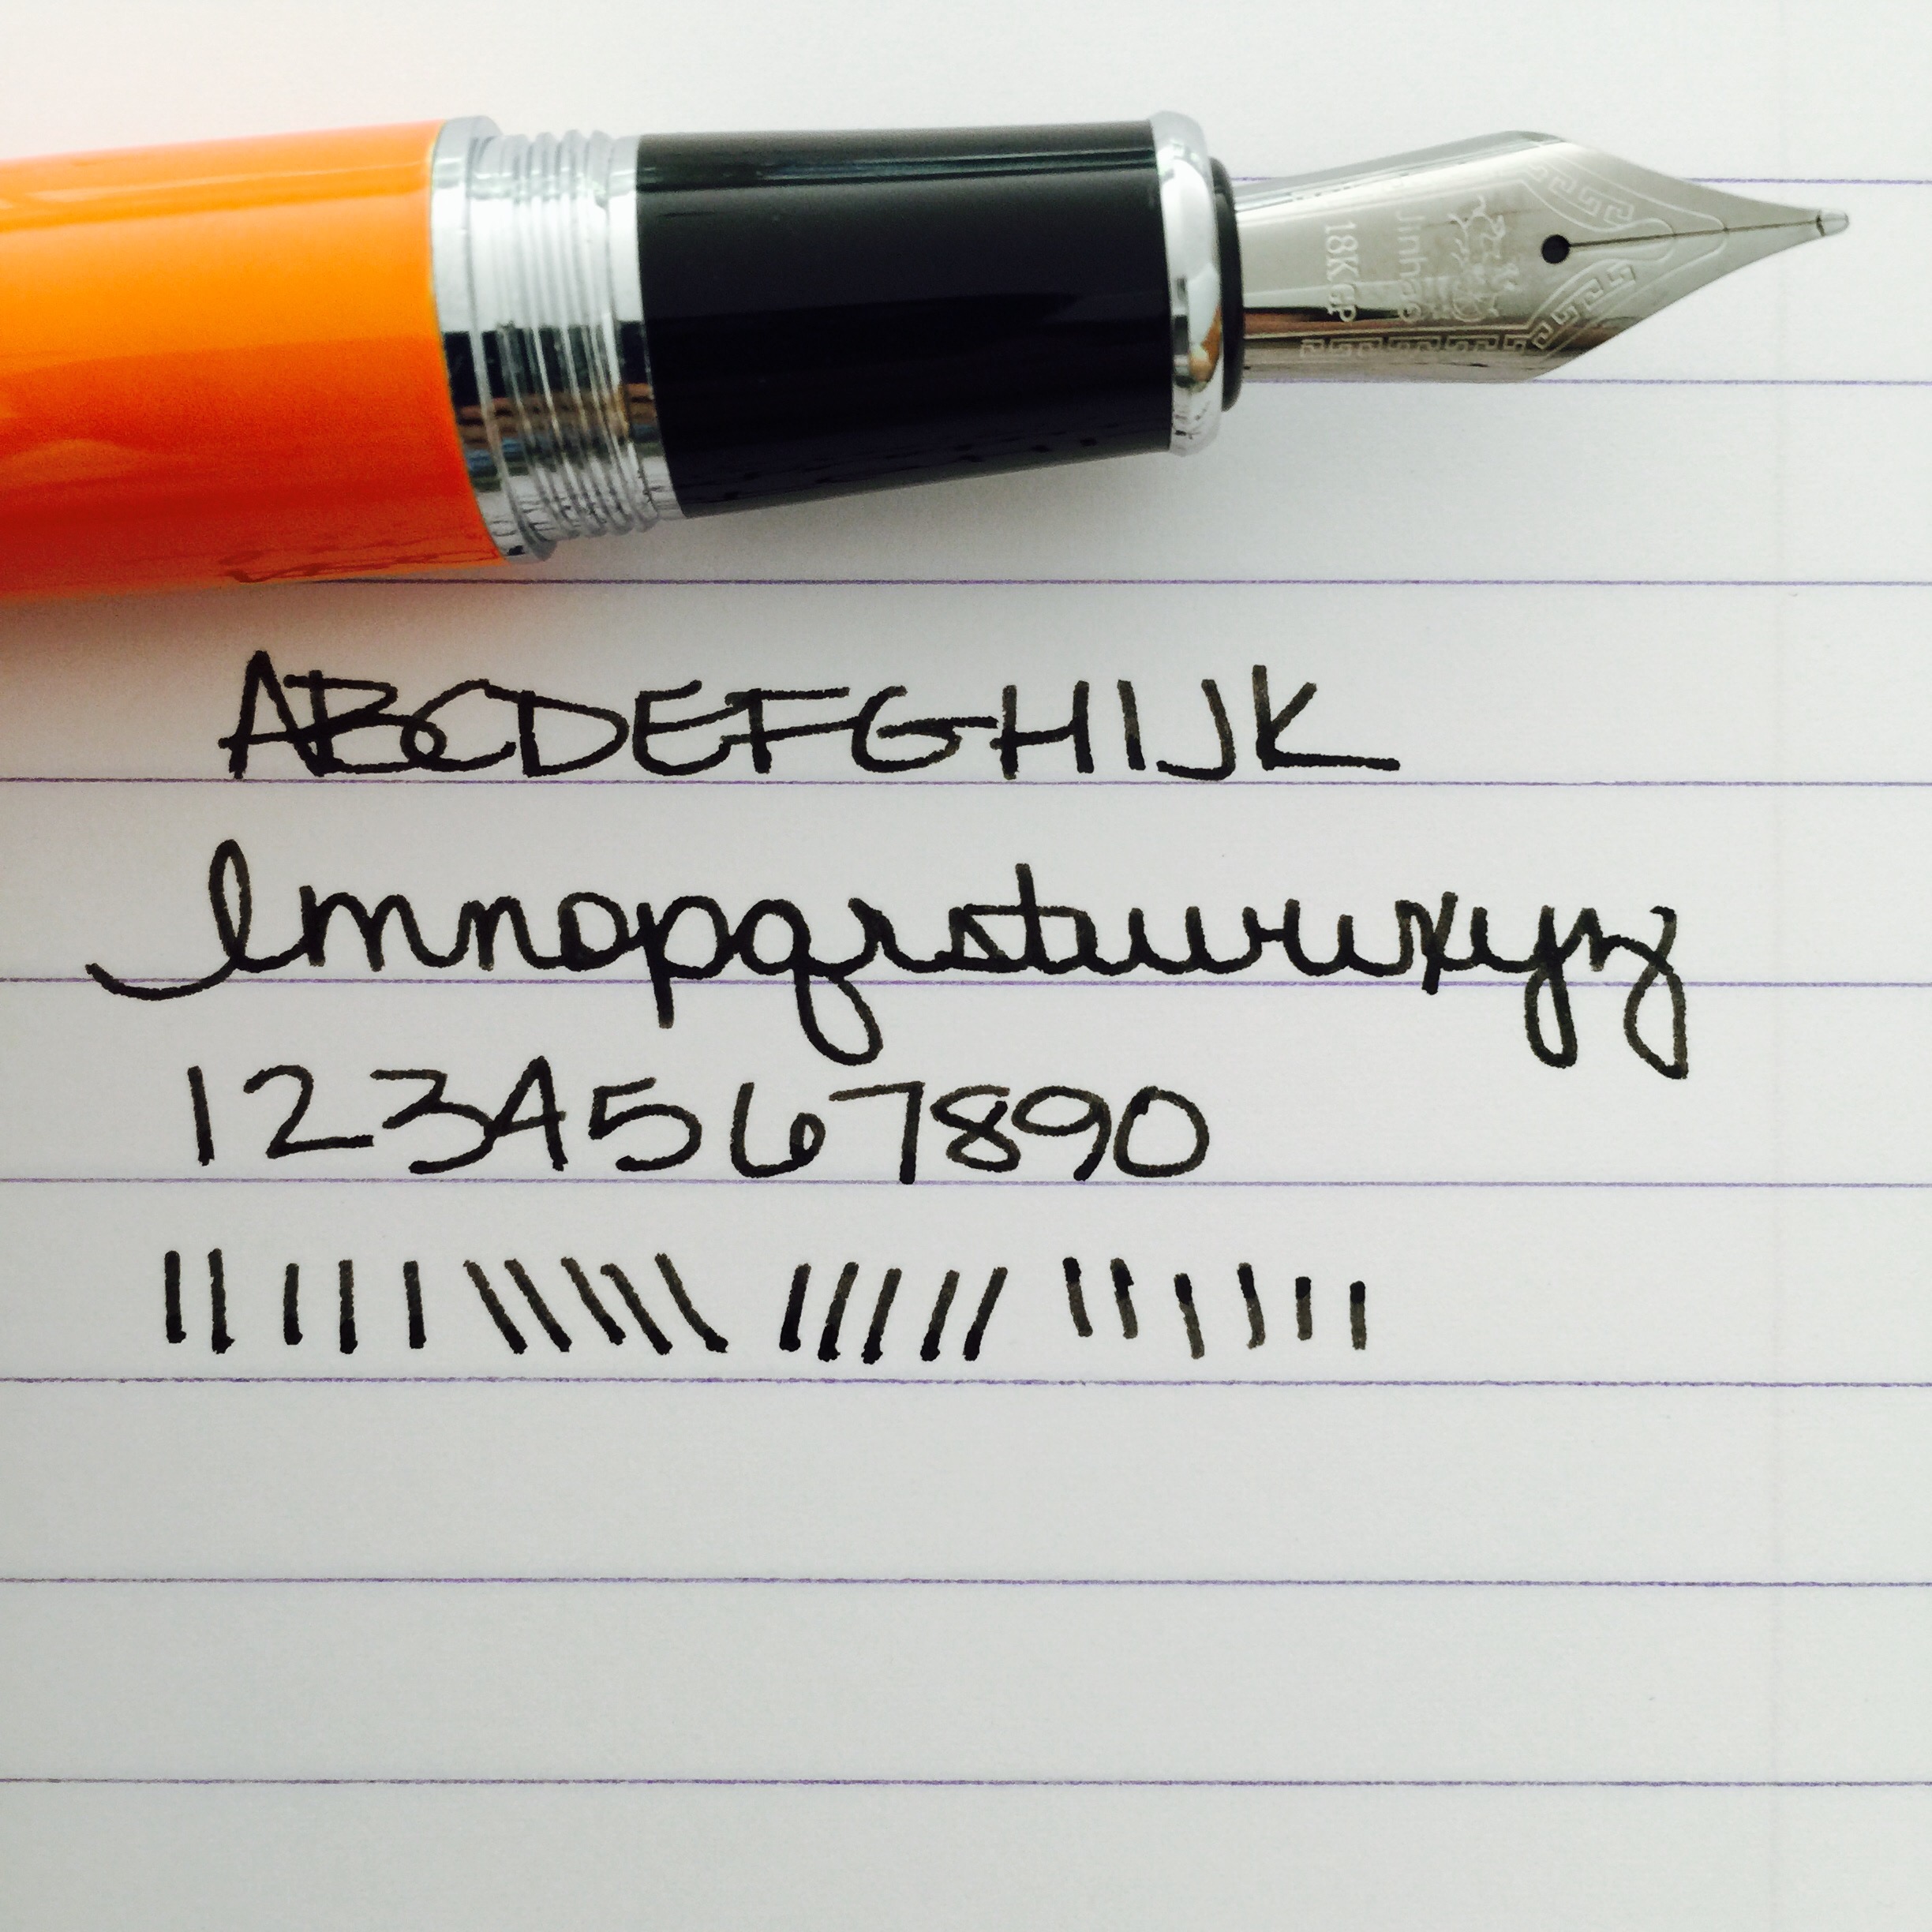 Jinhao
18KGP
ABCDEFGHIJK
lmnopqrstuvwxyz
1234567890